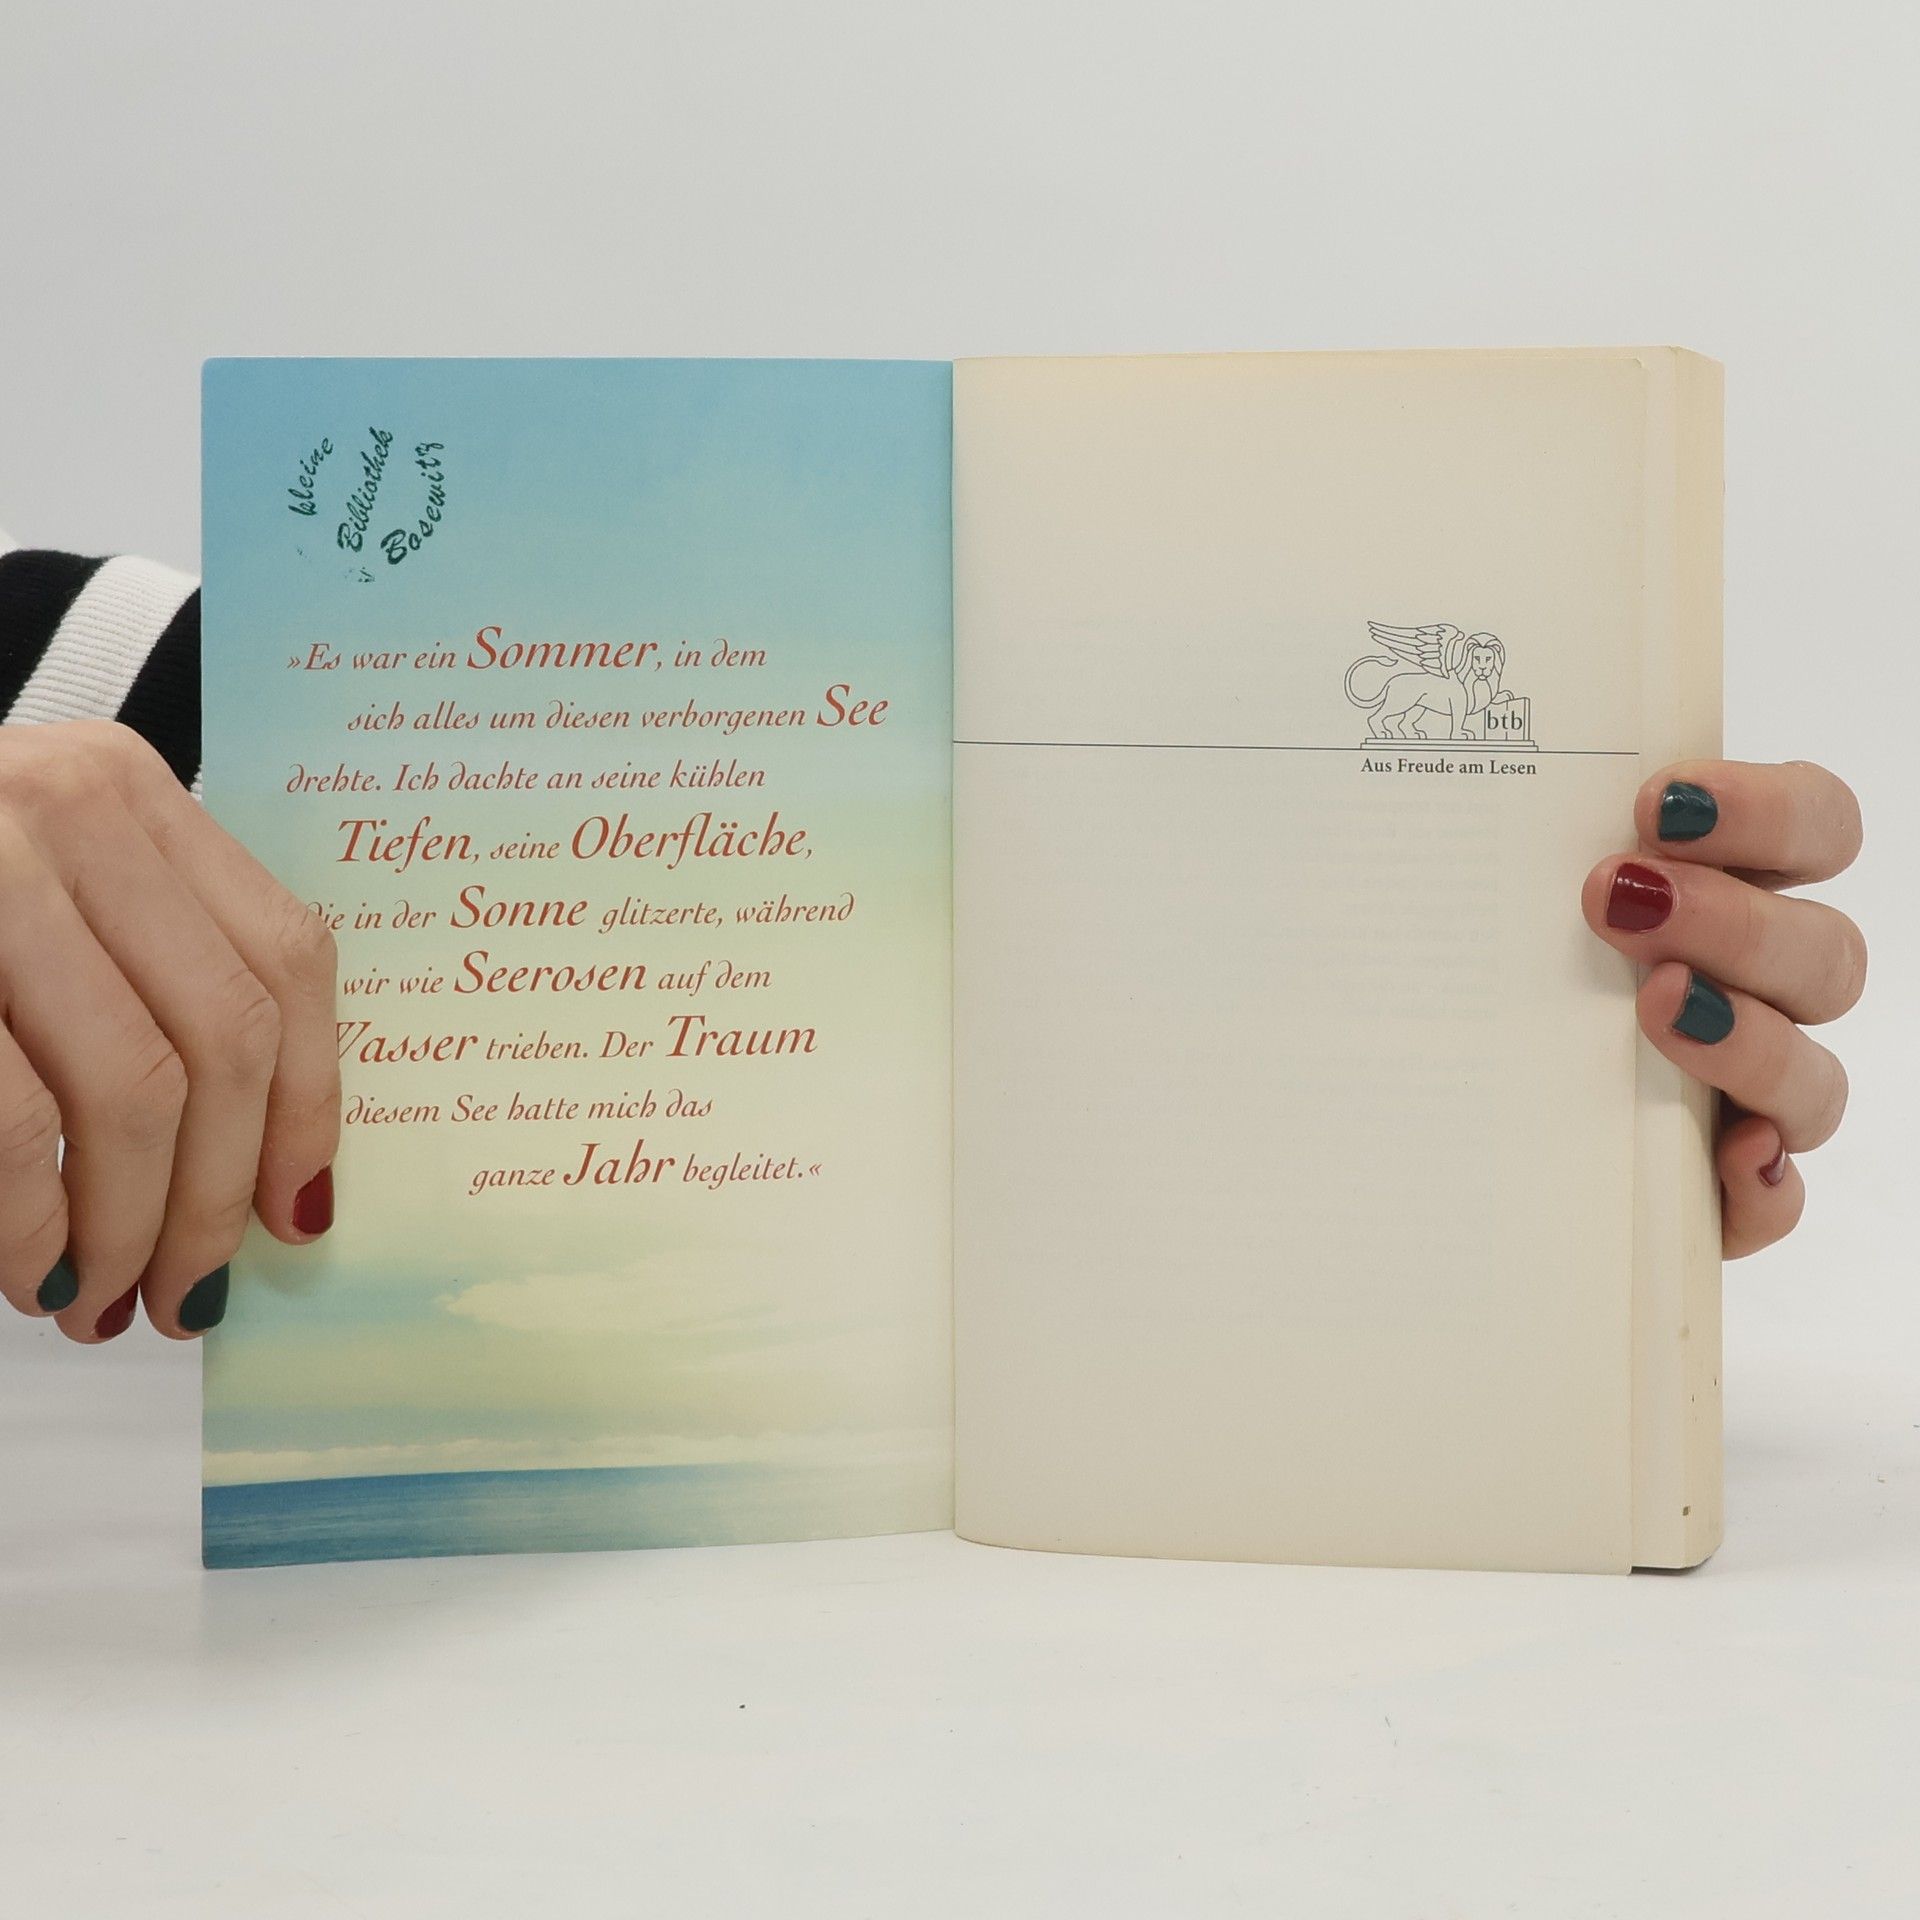 kleine
Bibliothek
Basewitz
»Es war ein Sommer, in dem
sich alles um diesen verborgenen See
drehte. Ich dachte an seine kühlen
Tiefen, seine Oberfläche,
die in der Sonne glitzerte, während
wir wie Seerosen auf dem
Wasser trieben. Der Traum
diesem See hatte mich das
ganze Jahr begleitet.«
btb
Aus Freude am Lesen